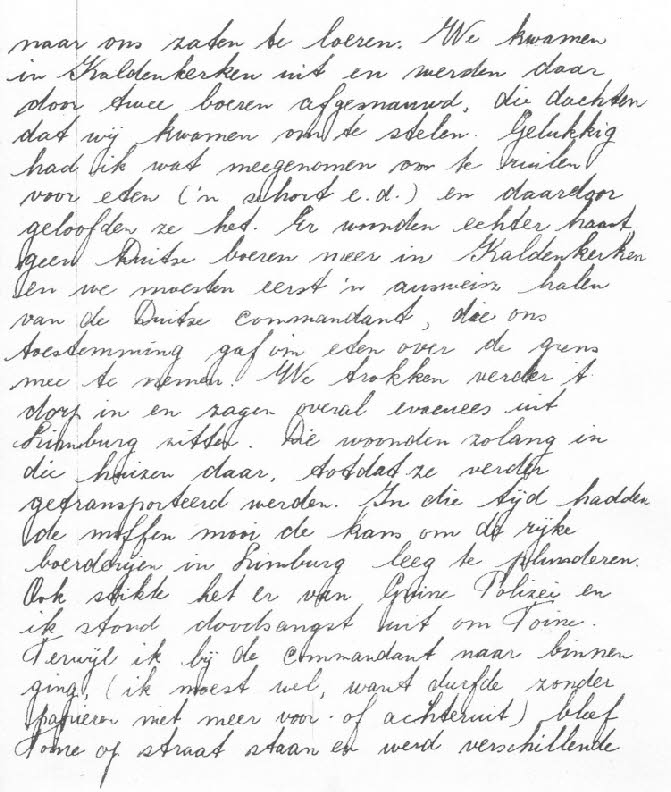 naar ons zaten te loeren. We kwamen
in Kaldenkerken uit en werden daar
door twee boeren afgesnauwd, die dachten
dat wij kwamen om te stelen. Gelukkig
had ik wat meegenomen om te ruilen
voor eten ('n schort e.d.) en daardoor
geloofden ze het. Er woonden echter haast
geen Duitse boeren meer in Kaldenkerken
en we moesten eerst 'n ausweisz halen
van de Duitse commandant, die ons
toestemming gaf om eten over de grens
mee te nemen. We trokken verder 't
dorp in en zagen overal evacuees uit
Limburg zitten. Die woonden zolang in
die huizen daar, totdat ze verder
getransporteerd werden. In die tijd hadden
de moffen mooi de kans om de rijke
boerderijen in Limburg leeg te plunderen.
Ook stikte het er van Grüne Polizei en
ik stond doodsangst uit om Toine.
Terwijl ik bij de commandant naar binnen
ging, (ik moest wel, want durfde zonder
papieren niet meer voor- of achteruit) bleef
Toine op straat staan en werd verschillende